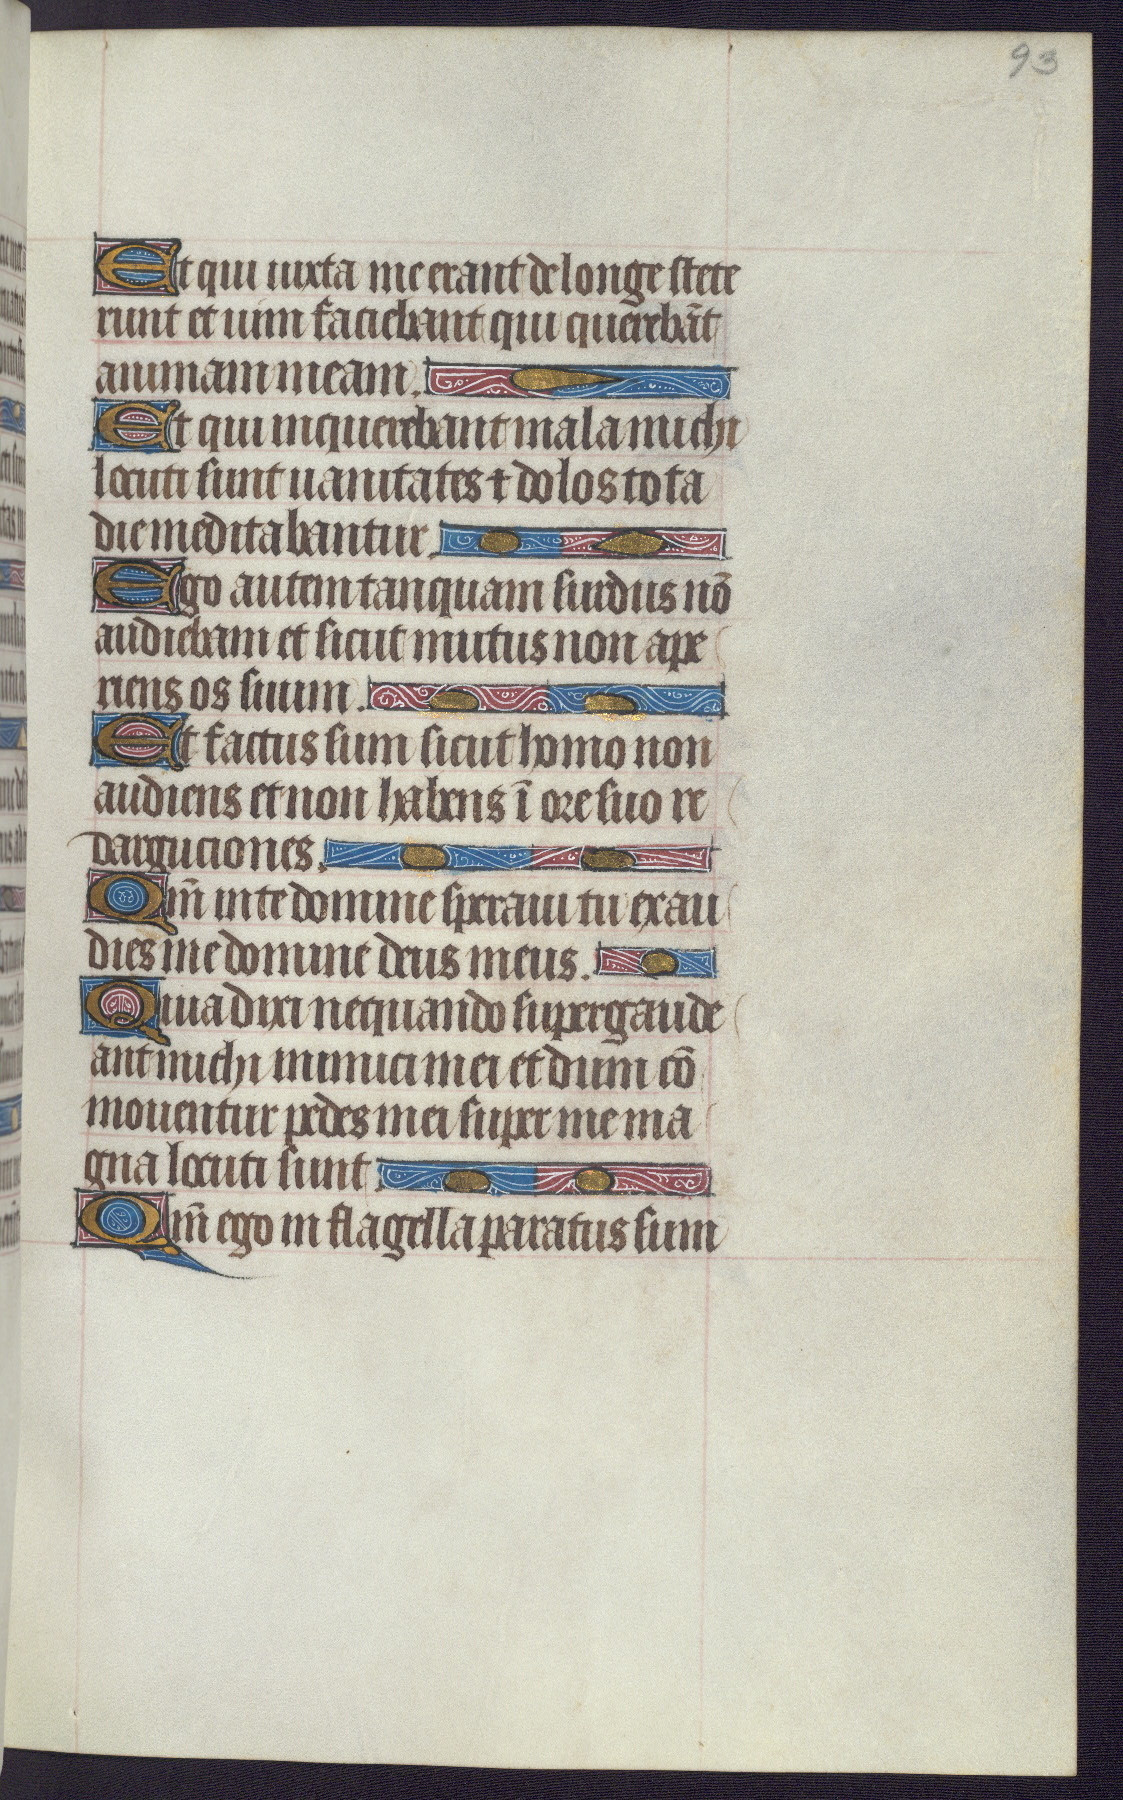 93
Et qui iuxta me erant de longe stete
runt et uim faciebant qui querebāt
animam meam.
Et qui inquerebant mala michi
locuti sunt uanitates ⁊ dolos tota
die meditabantur.
Ego autem tanquam surdus nō
audiebam et sicut mutus non ape
riens os suum.
Et factus sum sicut homo non
audiens et non habens ī ore suo re
darguciones.
Qm̄ in te domine speraui tu exau
dies me domine deus meus.
Quia dixi nequando supergaude
ant michi inimici mei et dum cō
mouentur pedes mei super me ma
gna locuti sunt
Qm̄ ego in flagella paratus sum